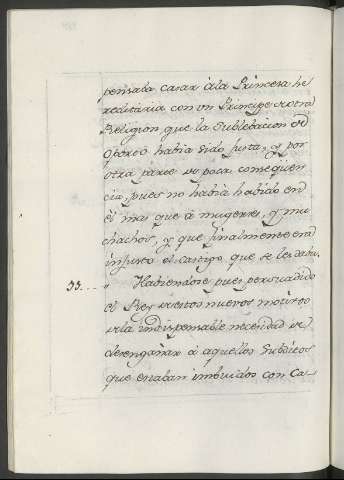 pensaba casar à la Princesa he
reditaria con un Principe de otra
Religion, que la sublebacion de
Oporto habia sido justa, y por
otra parte de poca consequen
cia, pues no habia habido en
el mas que à mugeres, y mu
chachos, y que finalmente era
injusto el castigo que se les daba.
33.... " Habiendose pues persuadido
el Rey de estos nuevos motivos
de la indispensable necesidad de
desengañar à aquellos Subditos
que estaban imbuidos con Ca-